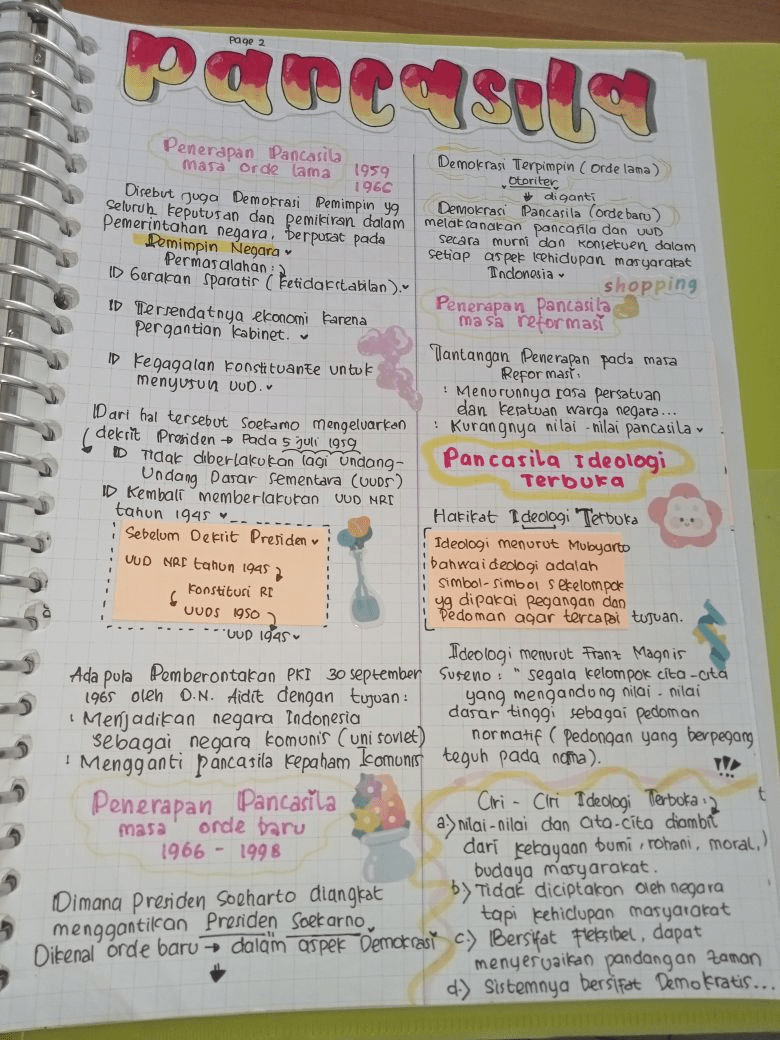 Page 2
pancasila
Penerapan Pancasila
masa orde lama 1959
1966
Disebut juga Demokrasi Pemimpin yg
seluruh keputusan dan pemikiran dalam
Pemerintahan negara, berpusat pada
Pemimpin Negara
Permasalahan:
Gerakan Sparatis (ketidakstabilan).
Tersendatnya ekonomi karena
pergantian kabinet.
Kegagalan Konstituante untuk
menyusun UUD.
Dari hal tersebut Soekarno mengeluarkan
dekrit Presiden → Pada 5 juli 1959
Tidak diberlakukan lagi Undang-
Undang Dasar Sementara (UUDS)
Kembali memberlakukan UUD NRI
tahun 1945
Sebelum Dekrit Presiden
UUD NRI tahun 1945
Konstitusi RI
UUDS 1950
UUD 1945
Ada pula Pemberontakan PKI 30 september
1965 oleh D.N. Aidit dengan tujuan:
: Menjadikan negara Indonesia
sebagai negara komunis (uni soviet)
: Mengganti pancasila kepaham Komunis
Penerapan Pancasila
masa orde baru
1966 - 1998
Dimana Presiden Soeharto diangkat
menggantikan Presiden Soekarno
Dikenal orde baru → dalam aspek Demokrasi
Demokrasi Terpimpin (orde lama)
otoriter
diganti
Demokrasi Pancasila (orde baru)
melaksanakan pancasila dan UUD
secara murni dan konsekuen dalam
setiap aspek kehidupan masyarakat
Indonesia
shopping
Penerapan pancasila
masa reformasi
Tantangan Penerapan pada masa
Reformasi:
: Menurunnya rasa persatuan
dan kesatuan warga negara...
: Kurangnya nilai-nilai pancasila
Pancasila Ideologi
Terbuka
Hakikat Ideologi Terbuka
Ideologi menurut Mubyarto
bahwa ideologi adalah
simbol-simbol sekelompok
yg dipakai pegangan dan
Pedoman agar tercapai tujuan.
Ideologi menurut Franz Magnis
Suseno: "segala kelompok cita-cita
yang mengandung nilai-nilai
dasar tinggi sebagai pedoman
normatif (Pedongan yang berpegang
teguh pada noma).
!!!
Ciri-Ciri Ideologi Terbuka:
a) nilai-nilai dan cita-cita diambil
dari kekayaan bumi, rohani, moral,
budaya masyarakat.
b) Tidak diciptakan oleh negara
tapi kehidupan masyarakat
c) Bersifat Fleksibel, dapat
menyesuaikan pandangan zaman
d) Sistemnya bersifat Demokratis...